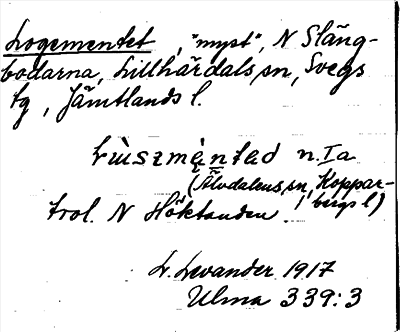 Logementet, "myst", N Släng-
bodarna, Lillhärdals sn, Svegs
tg, Jämtlands l.
n. Ia
(Älvdalens sn, Koppar-
bergs l)
trol. N Höktanden!
L. Levander 1917
Ulma 339:3